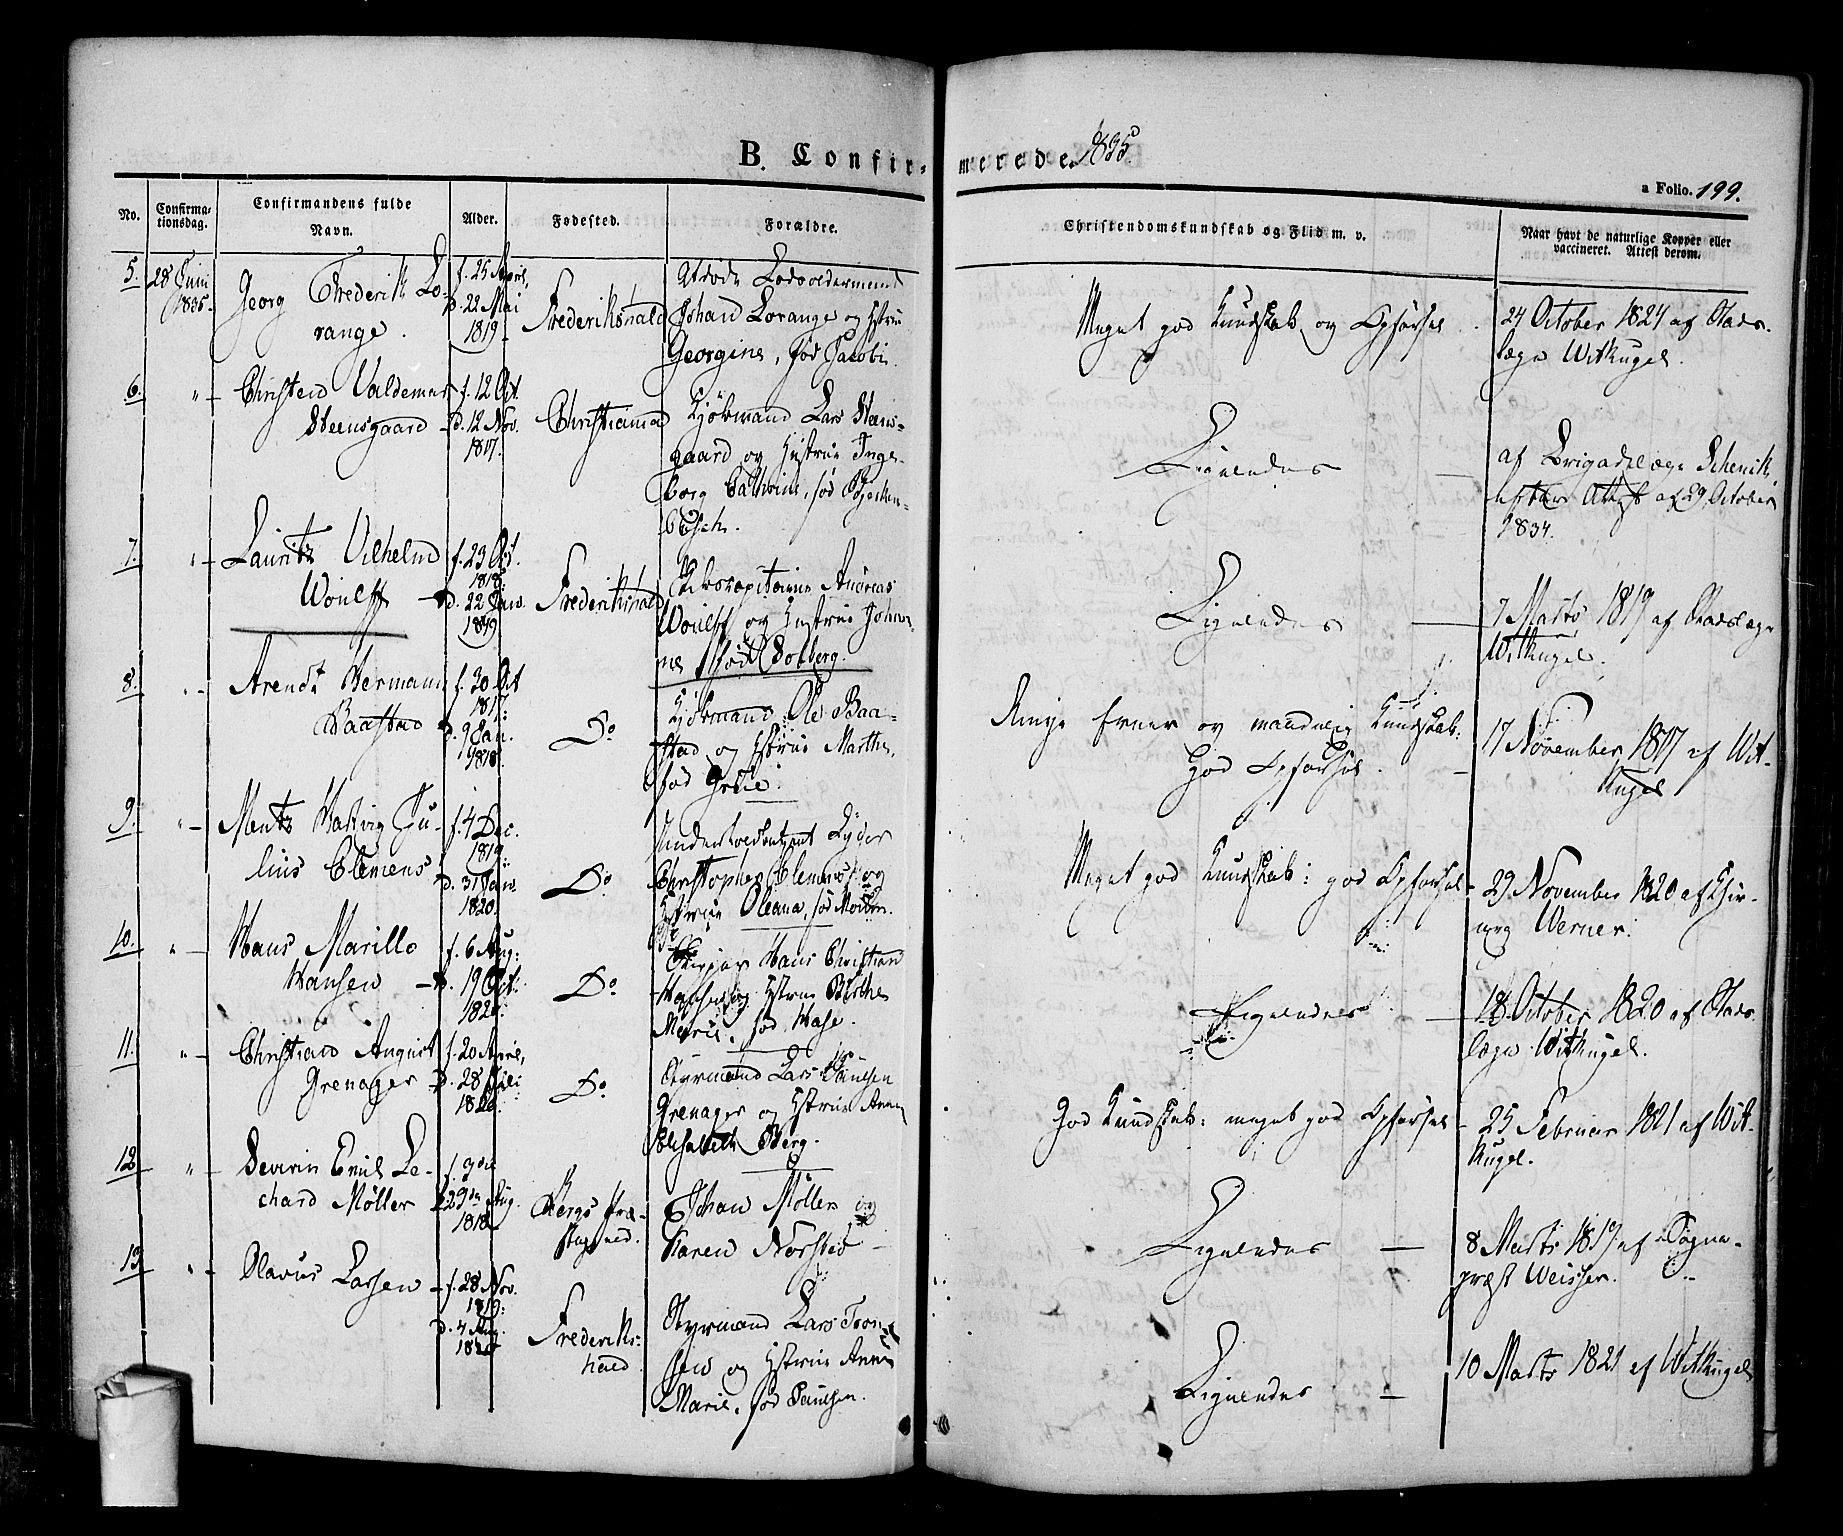 B. Confir-
merede 1835.
a Folio. 199.
No.
Confirma-
tionsdag.
Confirmandens fulde
Navn.
Alder.
Fødested.
Forældre.
Christendomskundskab og Flid m. v.
Naar havt de naturlige Kopper eller
vaccineret. Attest derom.
5.
28 Juni
1835.
Georg Frederik Lo-
range.
f. 25 April,
d. 22 Mai
1819
Frederikshald
Afdøde
Johan Lorange og Hstrue
Georgine, fød Jacobi.
Meget god Kundskab og Opførsel.
24 October 1824 af Stads-
læge Witkugel.
6.
" -
Christen Valdemar
Steensgaard -
f. 12 Oct.
d. 12 Nov.
1817.
Christiania
Kjøbmand Lars Steens-
gaard og Hustrue Inge-
borg Cathrine, fød
Ligeledes
af Brigadelæge
efter Attest af 29 October
1834.
7.
" -
Lauritz Vilhelm
Woulff -
f. 23 Oct.
1818.
d. 22 Jan.
1819
Frederikshald
Andreas
Woulff og Hustrue Johan-
ne, fød Solberg.
Ligeledes
7 Marts 1819 af Stadslæge
Witkugel.
8.
" -
Arendt Herman
Baastad
f. 30 Oct
1817.
d. 9 Jan.
1818.
Do
Kjøbmand Ole Baa-
stad og Hstrue Marthe,
fød
og maadelig Kundskab.
God Opførsel.
17 November 1817 af Wit-
kugel
9.
" -
Mentz Hartvig Ju-
lius Clemens
f. 4 Dec.
1819.
d. 31 Jan.
1820.
Do
Christopher Clemens og
Hstrue Oleana, fød
Meget god Kundskab: god Opførsel -
29 November 1820 af Chir-
urg Werner.
10.
" -
Hans Marillo
Hansen -
f. 6 Aug:
d. 19 Oct:
1820.
Do
Skipper Hans Christian
Hansen og Hstrue Birthe
Marie, fød Hase.
Ligeledes
18 October 1820 af Stads-
læge Witkugel.
11.
" -
Christian August
Grenager -
f. 20 April,
d. 28 Juli
1820.
Do
Styrmand Lars Paulsen
Grenager og Hstrue Anne
Elisabeth Berg.
God Kundskab: meget god Opførsel -
25 Februar 1821 af Wit-
kugel.
12
" -
Severin Emil Le-
chard Möller
Aug.
1818
Bergs Præ-
stegjeld.
Johan Möller og
Karen
Ligeledes -
8 Marts 1819 af Sogne-
præst Weisser.
13
" -
Olavus Larsen -
f. 28 Nov.
1819:
d. 4 Aug.
1820
Frederiks-
hald.
Styrmand Lars
sen og Hstrue Anne
Marie, fød Paulsen.
Ligeledes -
10 Marts 1821 af Witkugel